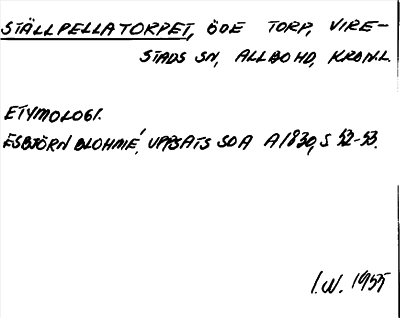 STÄLLPELLATORPET, ÖDE TORP, VIRE-
STADS SN, ALLBO HD, KRON.L.
ETYMOLOGI.
ESBJÖRN BLOHMÉ, UPPSATS SOA A 1830, S 52-53.
I.W. 1955